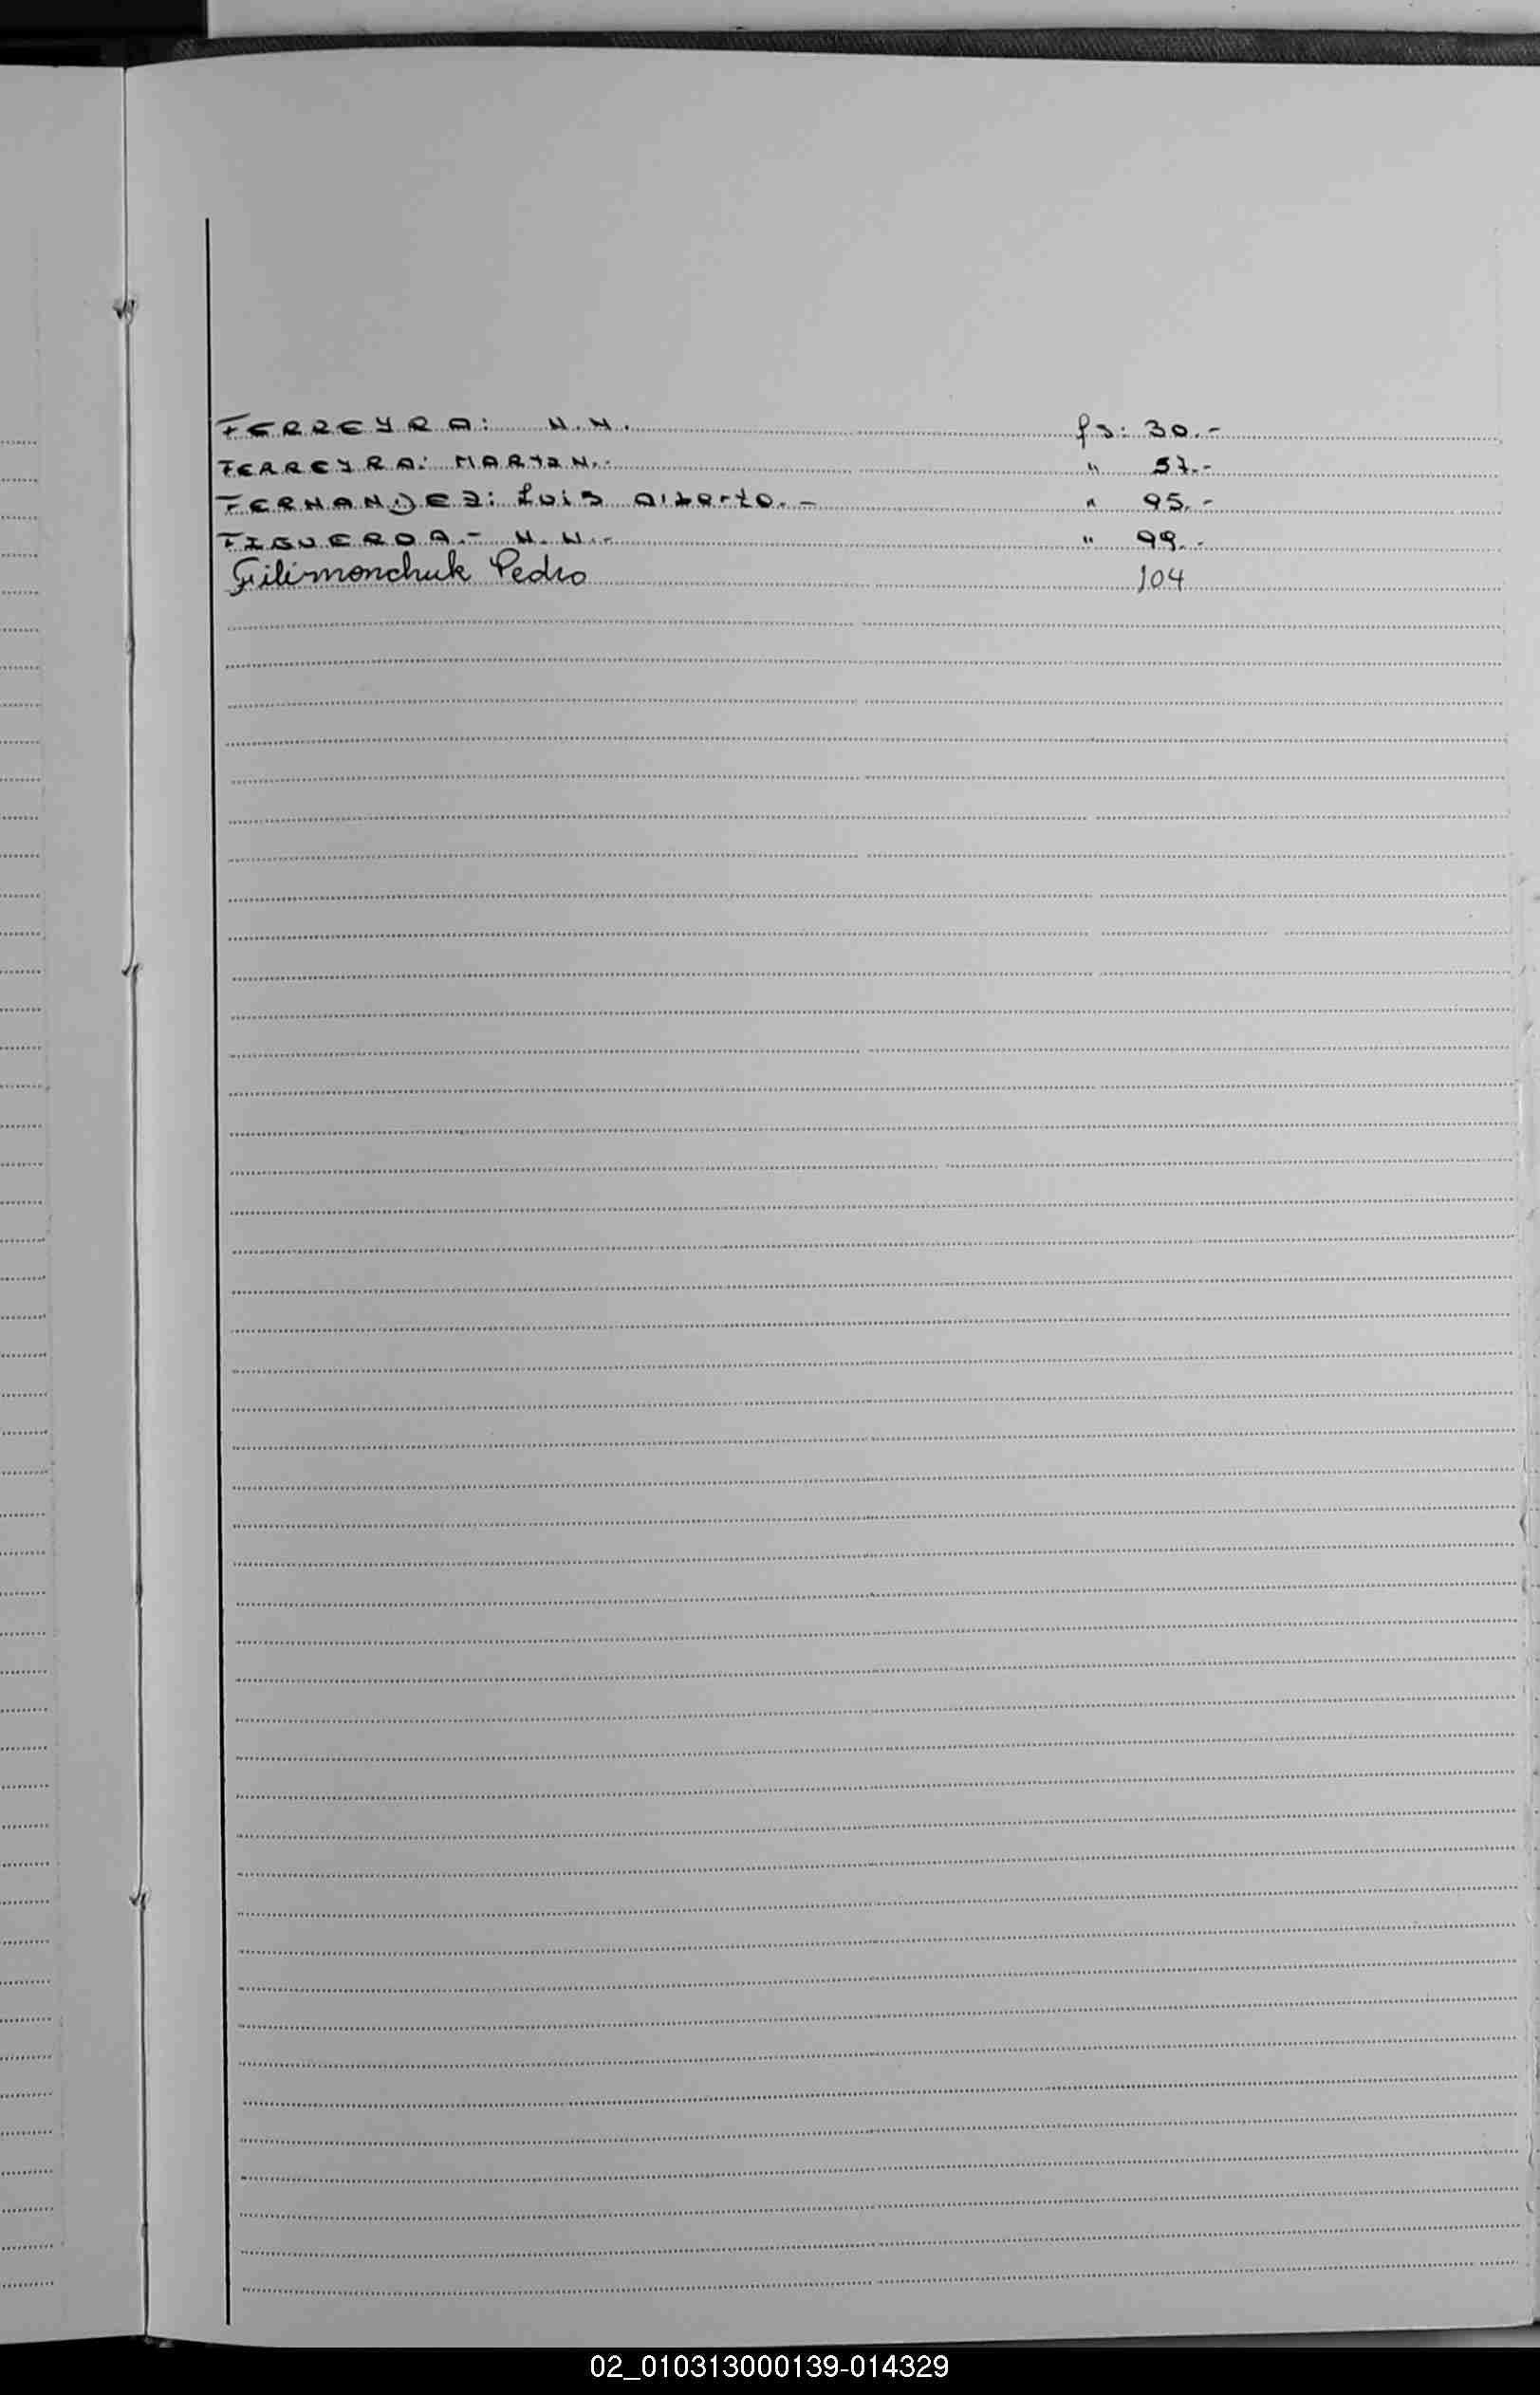 FERREYRA: N.N. fs: 30.-
FERREYRA: MARTIN.- " 57.-
FERNANDEZ: Luis Alberto.- " 95.-
FIGUEROA.- N.N.- " 99.-
Filimonchuk Pedro 104
02_010313000139-014329